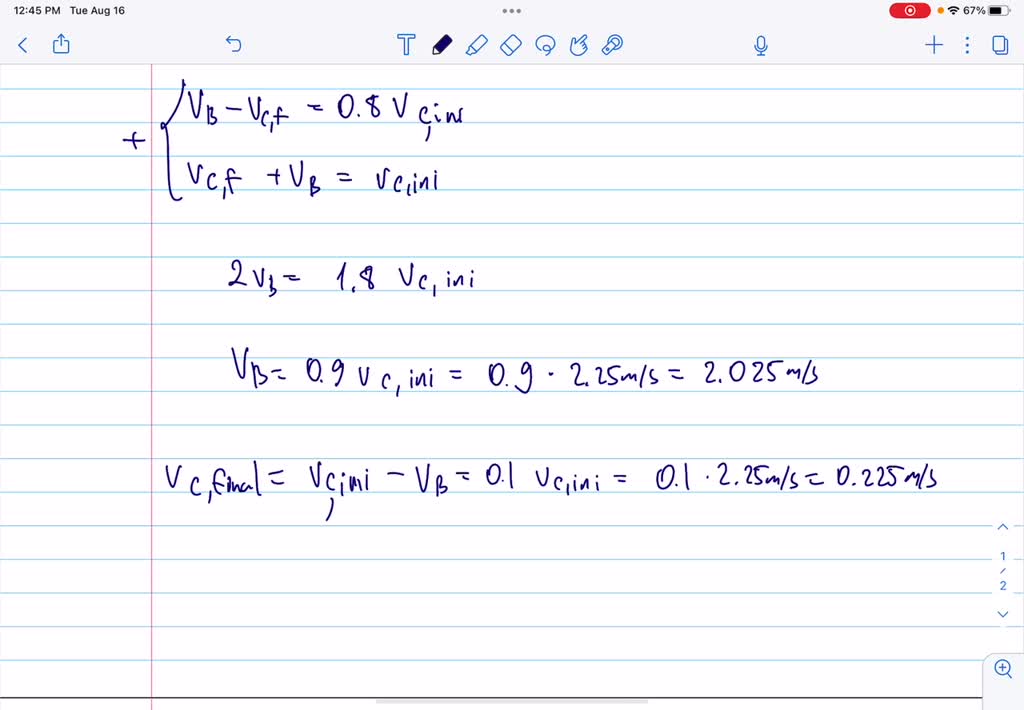 12:45 PM Tue Aug 16
67%
V_B - V_C,f = 0.8 V_C,ini
+
V_C,f + V_B = V_C,ini
2V_B = 1.8 V_C,ini
V_B = 0.9 V_C,ini = 0.9 · 2.25m/s = 2.025m/s
V_C,final = V_C,ini - V_B = 0.1 V_C,ini = 0.1 · 2.25m/s = 0.225m/s
1
/
2